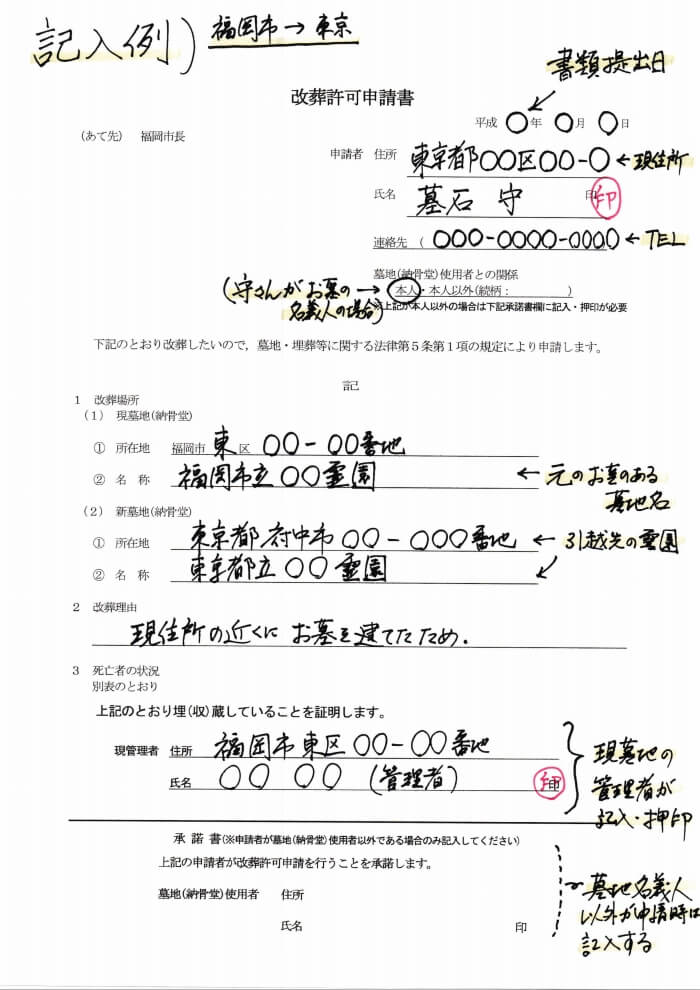 記入例) 福岡市→東京
書類提出日
改葬許可申請書
平成 〇年 〇月 〇日
(あて先) 福岡市長
申請者 住所 東京都〇〇区〇〇-〇 ←現住所
氏名 墓石 守 印
連絡先 ( 〇〇〇-〇〇〇〇-〇〇〇〇 ←TEL
墓地(納骨堂)使用者との関係
(守さんがお墓の名義人の場合) → 本人・本人以外(続柄: )
※上記が本人以外の場合は下記承諾書欄に記入・押印が必要
下記のとおり改葬したいので,墓地・埋葬等に関する法律第5条第1項の規定により申請します。
記
1 改葬場所
(1) 現墓地(納骨堂)
① 所在地 福岡市 東 区 〇〇-〇〇番地
② 名 称 福岡市立 〇〇霊園 ←元のお墓のある墓地名
(2) 新墓地(納骨堂)
① 所在地 東京都府中市 〇〇-〇〇〇番地 ←引越先の霊園
② 名 称 東京都立 〇〇 霊園
2 改葬理由
現住所の近くに お墓を建てたため.
3 死亡者の状況
別表のとおり
上記のとおり埋(収)蔵していることを証明します。
現管理者 住所 福岡市東区〇〇-〇〇番地
氏名 〇〇 〇〇 (管理者) 印
現墓地の
管理者が
記入・押印
承 諾 書(※申請者が墓地(納骨堂)使用者以外である場合のみ記入してください)
上記の申請者が改葬許可申請を行うことを承諾します。
墓地(納骨堂)使用者 住所
氏名 印
墓地名義人
以外が申請時は
記入する